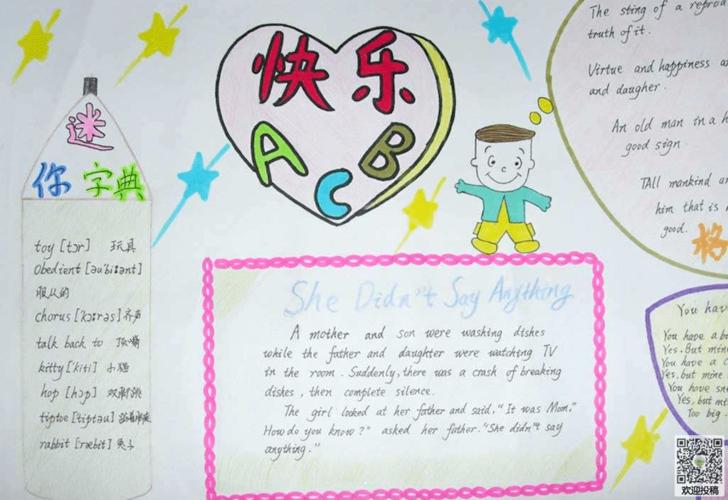 快乐
ABC
迷
你字典
toy [tɔr] 玩具
Obedient [əu'bi:ənt]
服从的
chorus ['kɔ:rəs] 齐声
talk back to 顶嘴
kitty ['kiti] 小猫
hop [hɔp] 双脚跳
tiptoe [tiptəu]
rabbit [ræbit] 兔子
She Didn't Say Anything
A mother and son were washing dishes
while the father and daughter were watching TV
in the room. Suddenly, there was a crash of breaking
dishes, then complete silence.
The girl looked at her father and said, "It was Mom."
How do you know?" asked her father. "She didn't say
anything."
The sting of a
truth of it.
Virtue and happiness
and daugher.
An old man in a
good sign.
TAll mankind
him that is
good.
格
You hav
You have a b
Yes. But mine
You have a
Yes, but mine
You have
Yes, but
Too big.
欢迎投稿